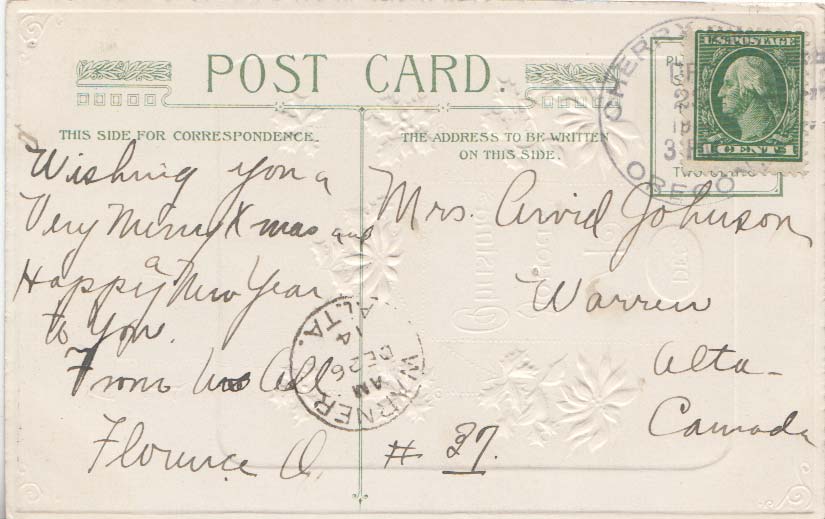 POST CARD.
THIS SIDE FOR CORRESPONDENCE.
THE ADDRESS TO BE WRITTEN
ON THIS SIDE.
U.S. POSTAGE
1 CENT 1
CHERRY
OREGON
Wishing you a
Very Merry Xmas and
a
Happy New Year
to You.
From Us All.
Florence O. # 37.
Mrs. Arvid Johnson
Warren
Alta-
Canada
WARNER
AM
DE 26
14
ALTA.